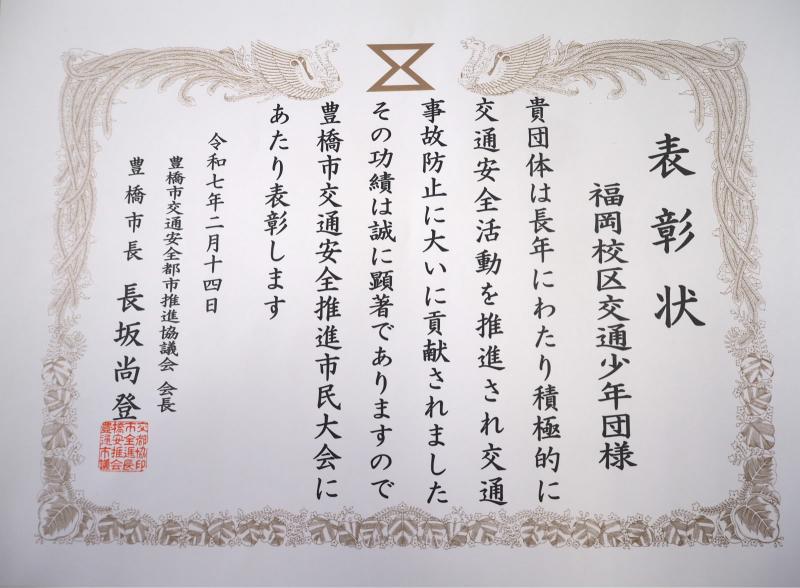 表彰状
福岡校区交通少年団様
貴団体は長年にわたり積極的に
交通安全活動を推進され交通
事故防止に大いに貢献されました
その功績は誠に顕著でありますので
豊橋市交通安全推進市民大会に
あたり表彰します
令和七年二月十四日
豊橋市交通安全都市推進協議会 会長
豊橋市長 長坂尚登
交都協印
市全進長
橋安推会
豊通市議